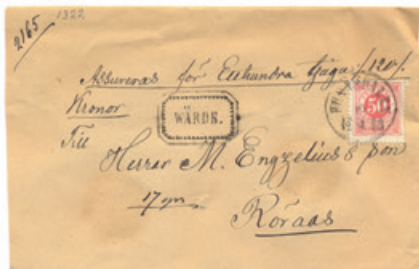 2165
1322
Assureras för Etthundra tjugo /120/.
Kronor
WÄRDE.
50
Till
Herrar M. Engzelius & Son
17 gm
Röraas